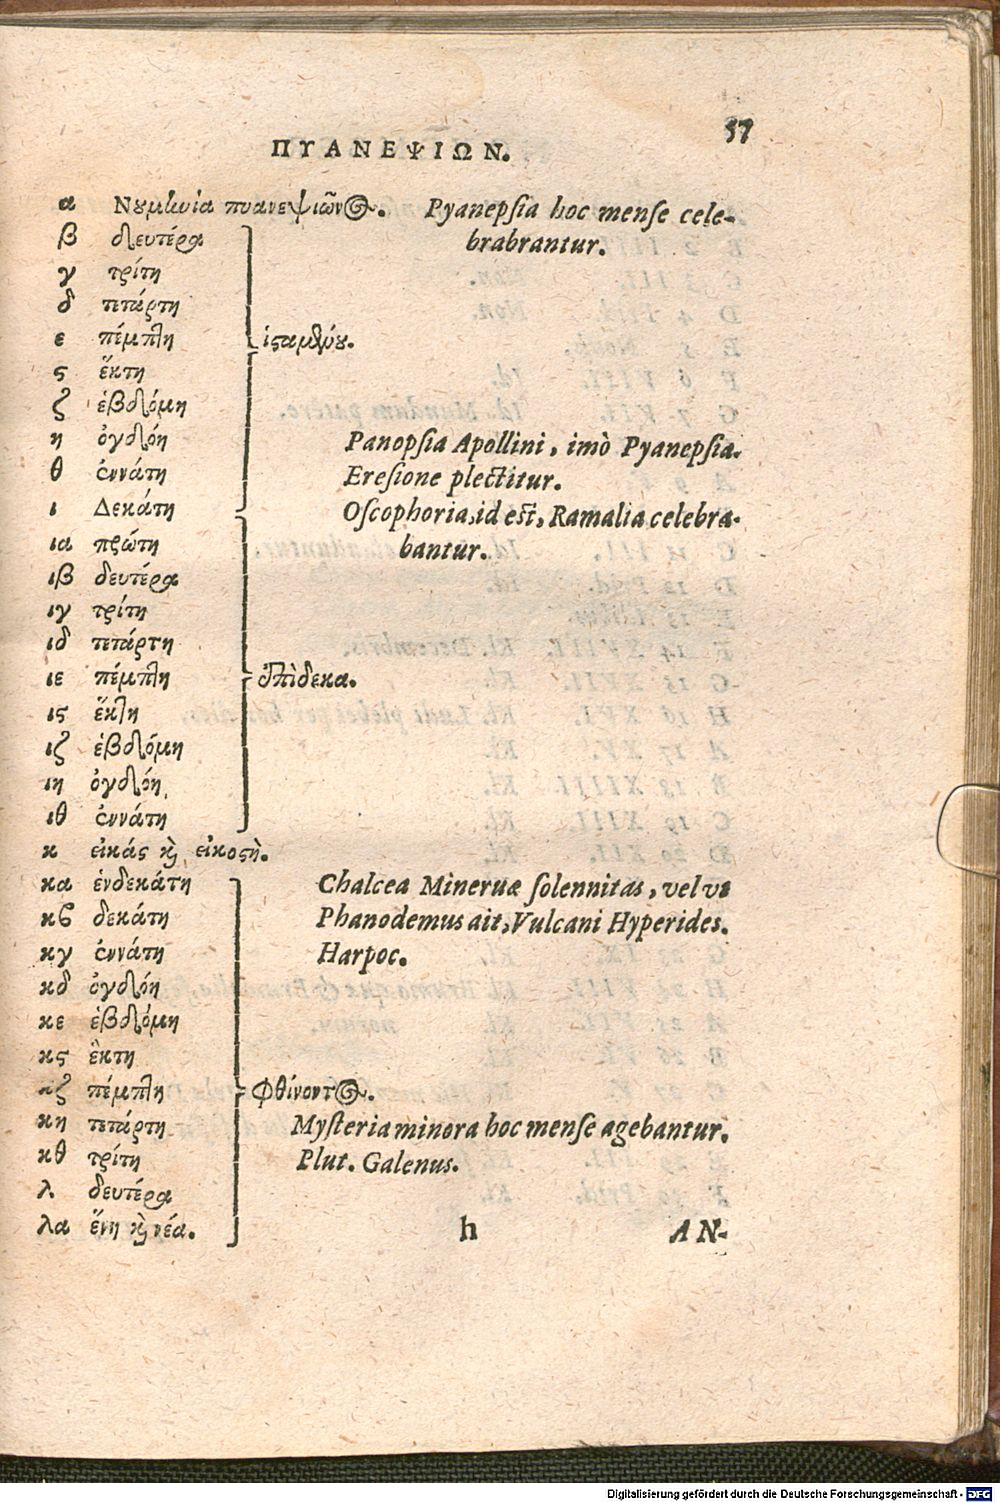 57
ΠΥΑΝΕΨΙΩΝ.
α Νουμηνία πυανεψιῶνος. Pyanepsia hoc mense cele-
β δευτέρα brabrantur.
γ τρίτη
δ τετάρτη
ε πέμπτη ἱσταμένου.
ϛ ἕκτη
ζ ἑβδόμη
η ὀγδόη Panopsia Apollini, imò Pyanepsia.
θ ἐννάτη Eresione plectitur.
ι Δεκάτη Oscophoria, id est, Ramalia celebra-
ια πρώτη bantur.
ιβ δευτέρα
ιγ τρίτη
ιδ τετάρτη
ιε πέμπτη ἐπὶδεκα.
ιϛ ἕκτη
ιζ ἑβδόμη
ιη ὀγδόη
ιθ ἐννάτη
κ εἰκάς καὶ εἰκοστὴ.
κα ἑνδεκάτη Chalcea Mineruæ solennitas, vel vt
κβ δεκάτη Phanodemus ait, Vulcani Hyperides.
κγ ἐννάτη Harpoc.
κδ ὀγδόη
κε ἑβδόμη
κϛ ἕκτη
κζ πέμπτη Φθίνοντος.
κη τετάρτη Mysteria minora hoc mense agebantur.
κθ τρίτη Plut. Galenus.
λ δευτέρα
λα ἕνη καὶ νέα.
h AN-
Digitalisierung gefördert durch die Deutsche Forschungsgemeinschaft - DFG